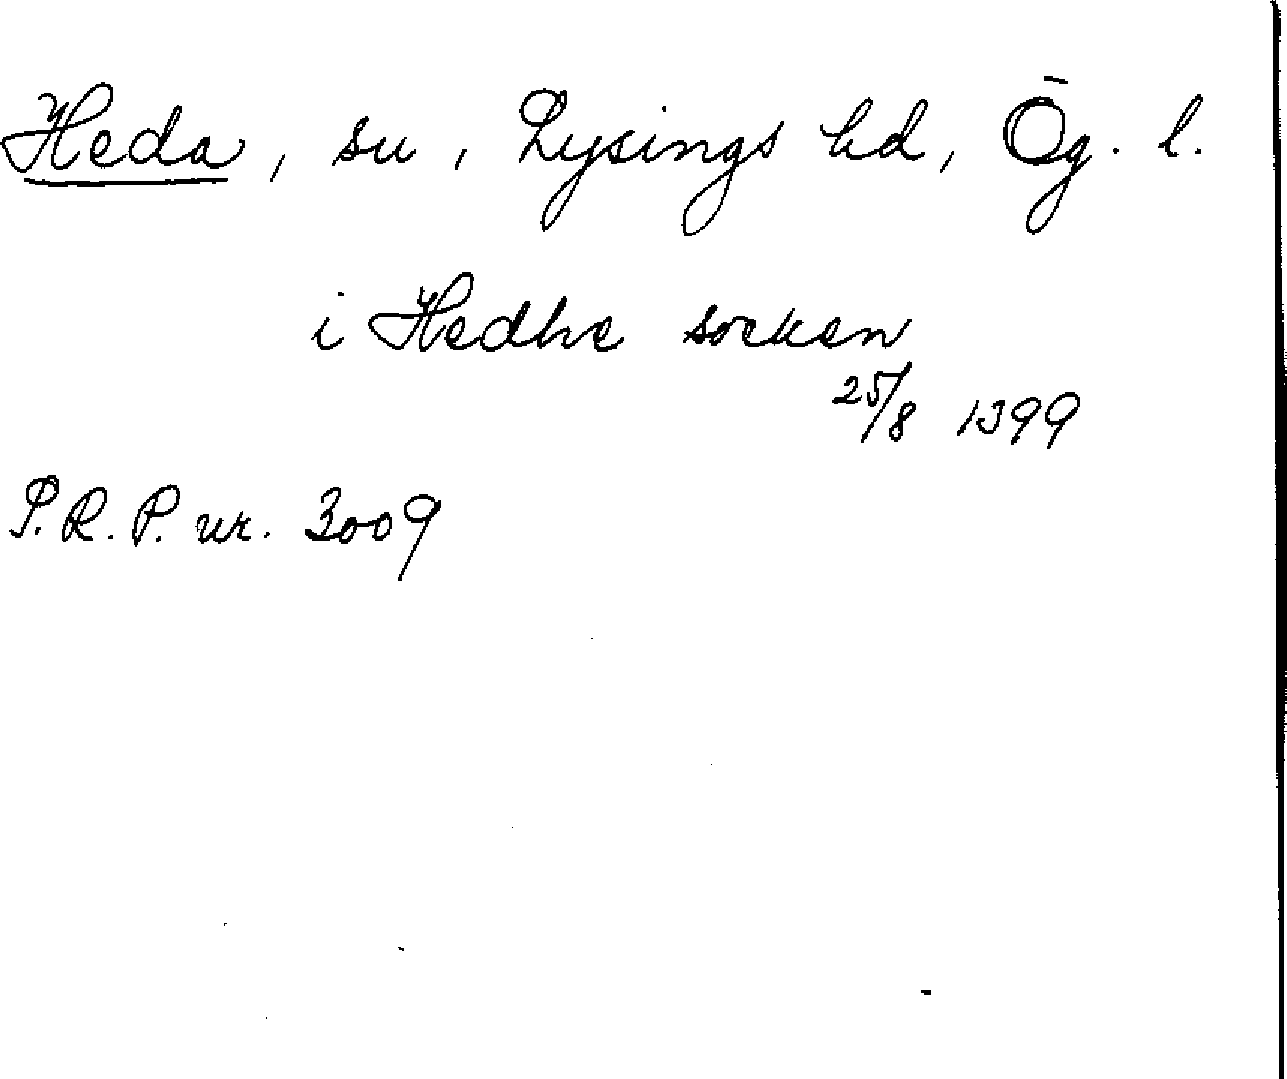 Heda, sn, Lysings hd, Ög. l.
i Hedhe socken
25/8 1399
P.R.P. nr. 3009